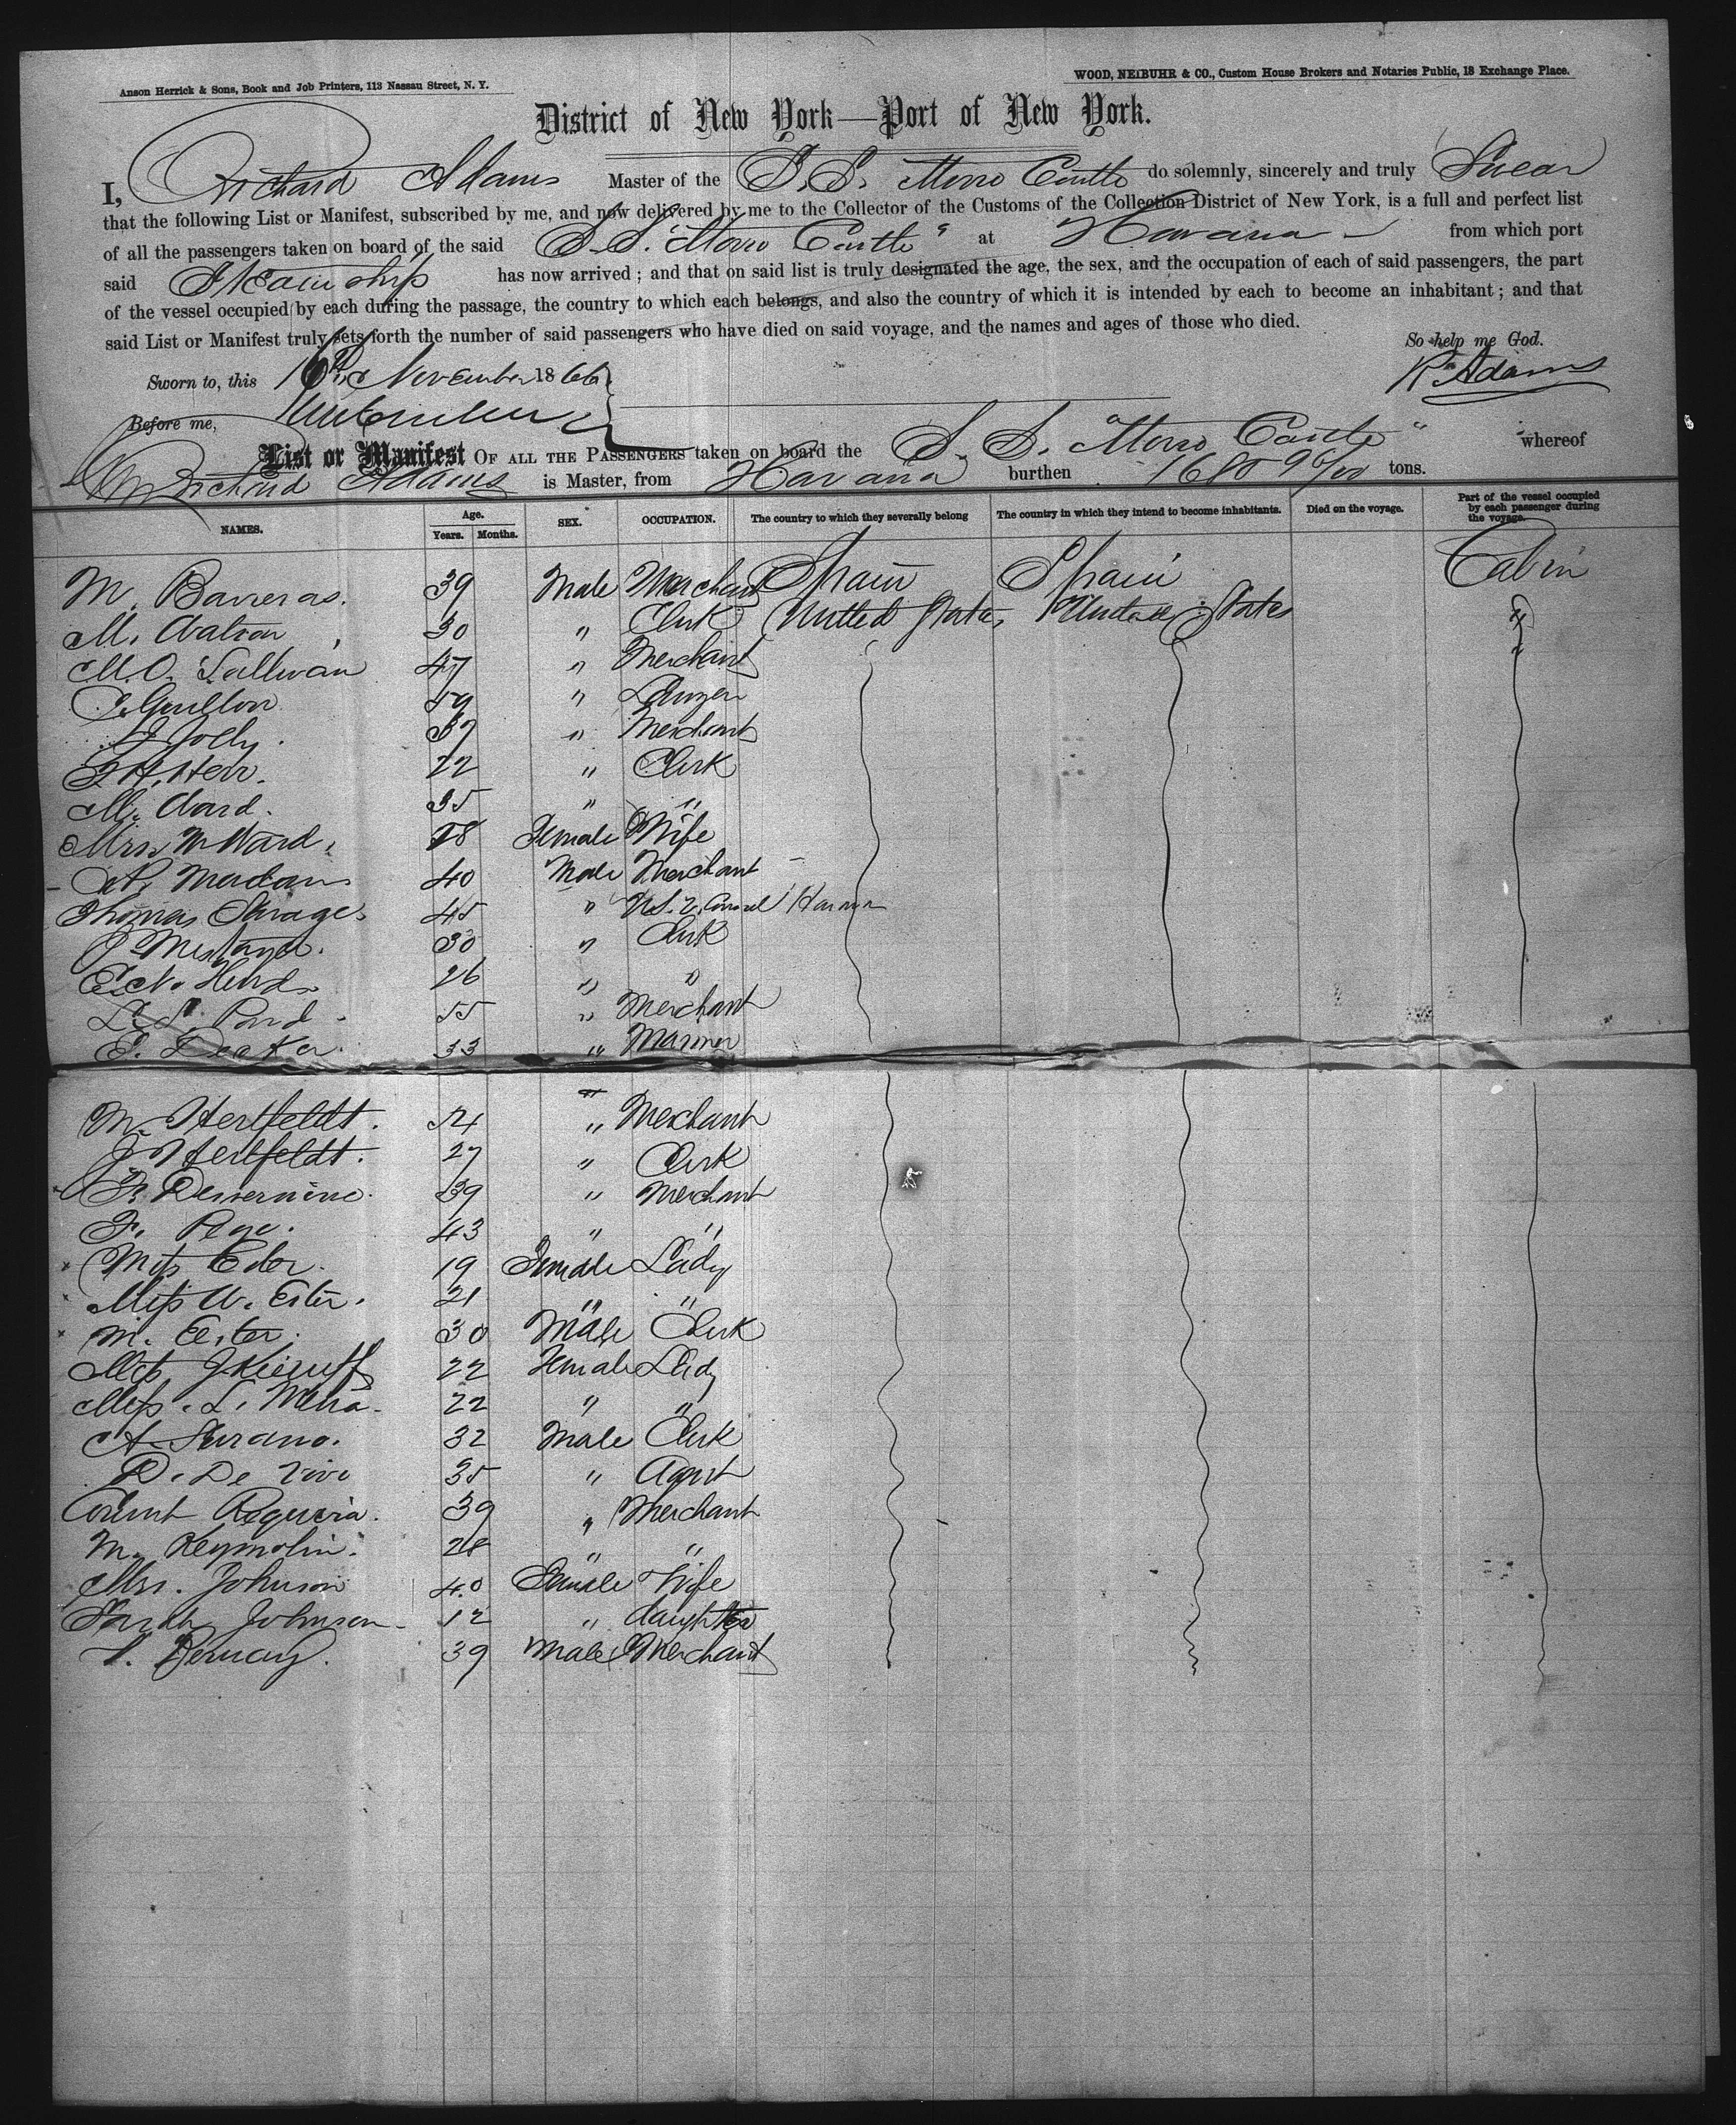 Anson Herrick & Sons, Book and Job Printers, 113 Nassau Street, N. Y.
WOOD, NEIBUHR & CO., Custom House Brokers and Notaries Public, 18 Exchange Place.
District of New York—Port of New York.
I, Richard Adams Master of the S.S. Morro Castle do solemnly, sincerely and truly Swear
that the following List or Manifest, subscribed by me, and now delivered by me to the Collector of the Customs of the Collection District of New York, is a full and perfect list
of all the passengers taken on board of the said S.S. "Morro Castle" at Havana from which port
said Steamship has now arrived; and that on said list is truly designated the age, the sex, and the occupation of each of said passengers, the part
of the vessel occupied by each during the passage, the country to which each belongs, and also the country of which it is intended by each to become an inhabitant; and that
said List or Manifest truly sets forth the number of said passengers who have died on said voyage, and the names and ages of those who died.
So help me God.
Sworn to, this 16th November 1866
R Adams
Before me,
List or Manifest OF ALL THE PASSENGERS taken on board the S. S. "Morro Castle" whereof
Richard Adams is Master, from Havana burthen 1680 96/100 tons.
NAMES. Age. Years. Months. SEX. OCCUPATION. The country to which they severally belong The country in which they intend to become inhabitants. Died on the voyage. Part of the vessel occupied by each passenger during the voyage.
M. Barreras. 39 Male Merchant Spain Spain Cabin
M. Watson 30 " Clerk United States United States "
M. O. Sullivan 47 " Merchant
59 " Lawyer
J Jolly. 37 " Merchant
Herr. 22 " Clerk
M. Ward. 35 " "
Mrs M Ward. 18 Female Wife
40 Male Merchant
Thomas Savage. 45 " U.S. V. Consul Havana
30 " Clerk
26 " "
L. S. Pond. 55 " Merchant
E. Deaker. 33 " Mariner
M. Hertfeldt. 54 " Merchant
J Hertfeldt. 27 " Clerk
39 " Merchant
F. 43 " "
Miss 19 Female Lady
Miss A. Ester. 21 " "
M. Ester. 30 Male Clerk
Miss J. 22 Female Lady
Miss. L. 22 " "
A. Serano. 32 Male Clerk
D. De Vivo 35 " Agent
Requeira. 39 " Merchant
M. Reymolin. 28 " "
Mrs. Johnson 40 Female Wife
Sarah Johnson 12 " daughter
39 Male Merchant